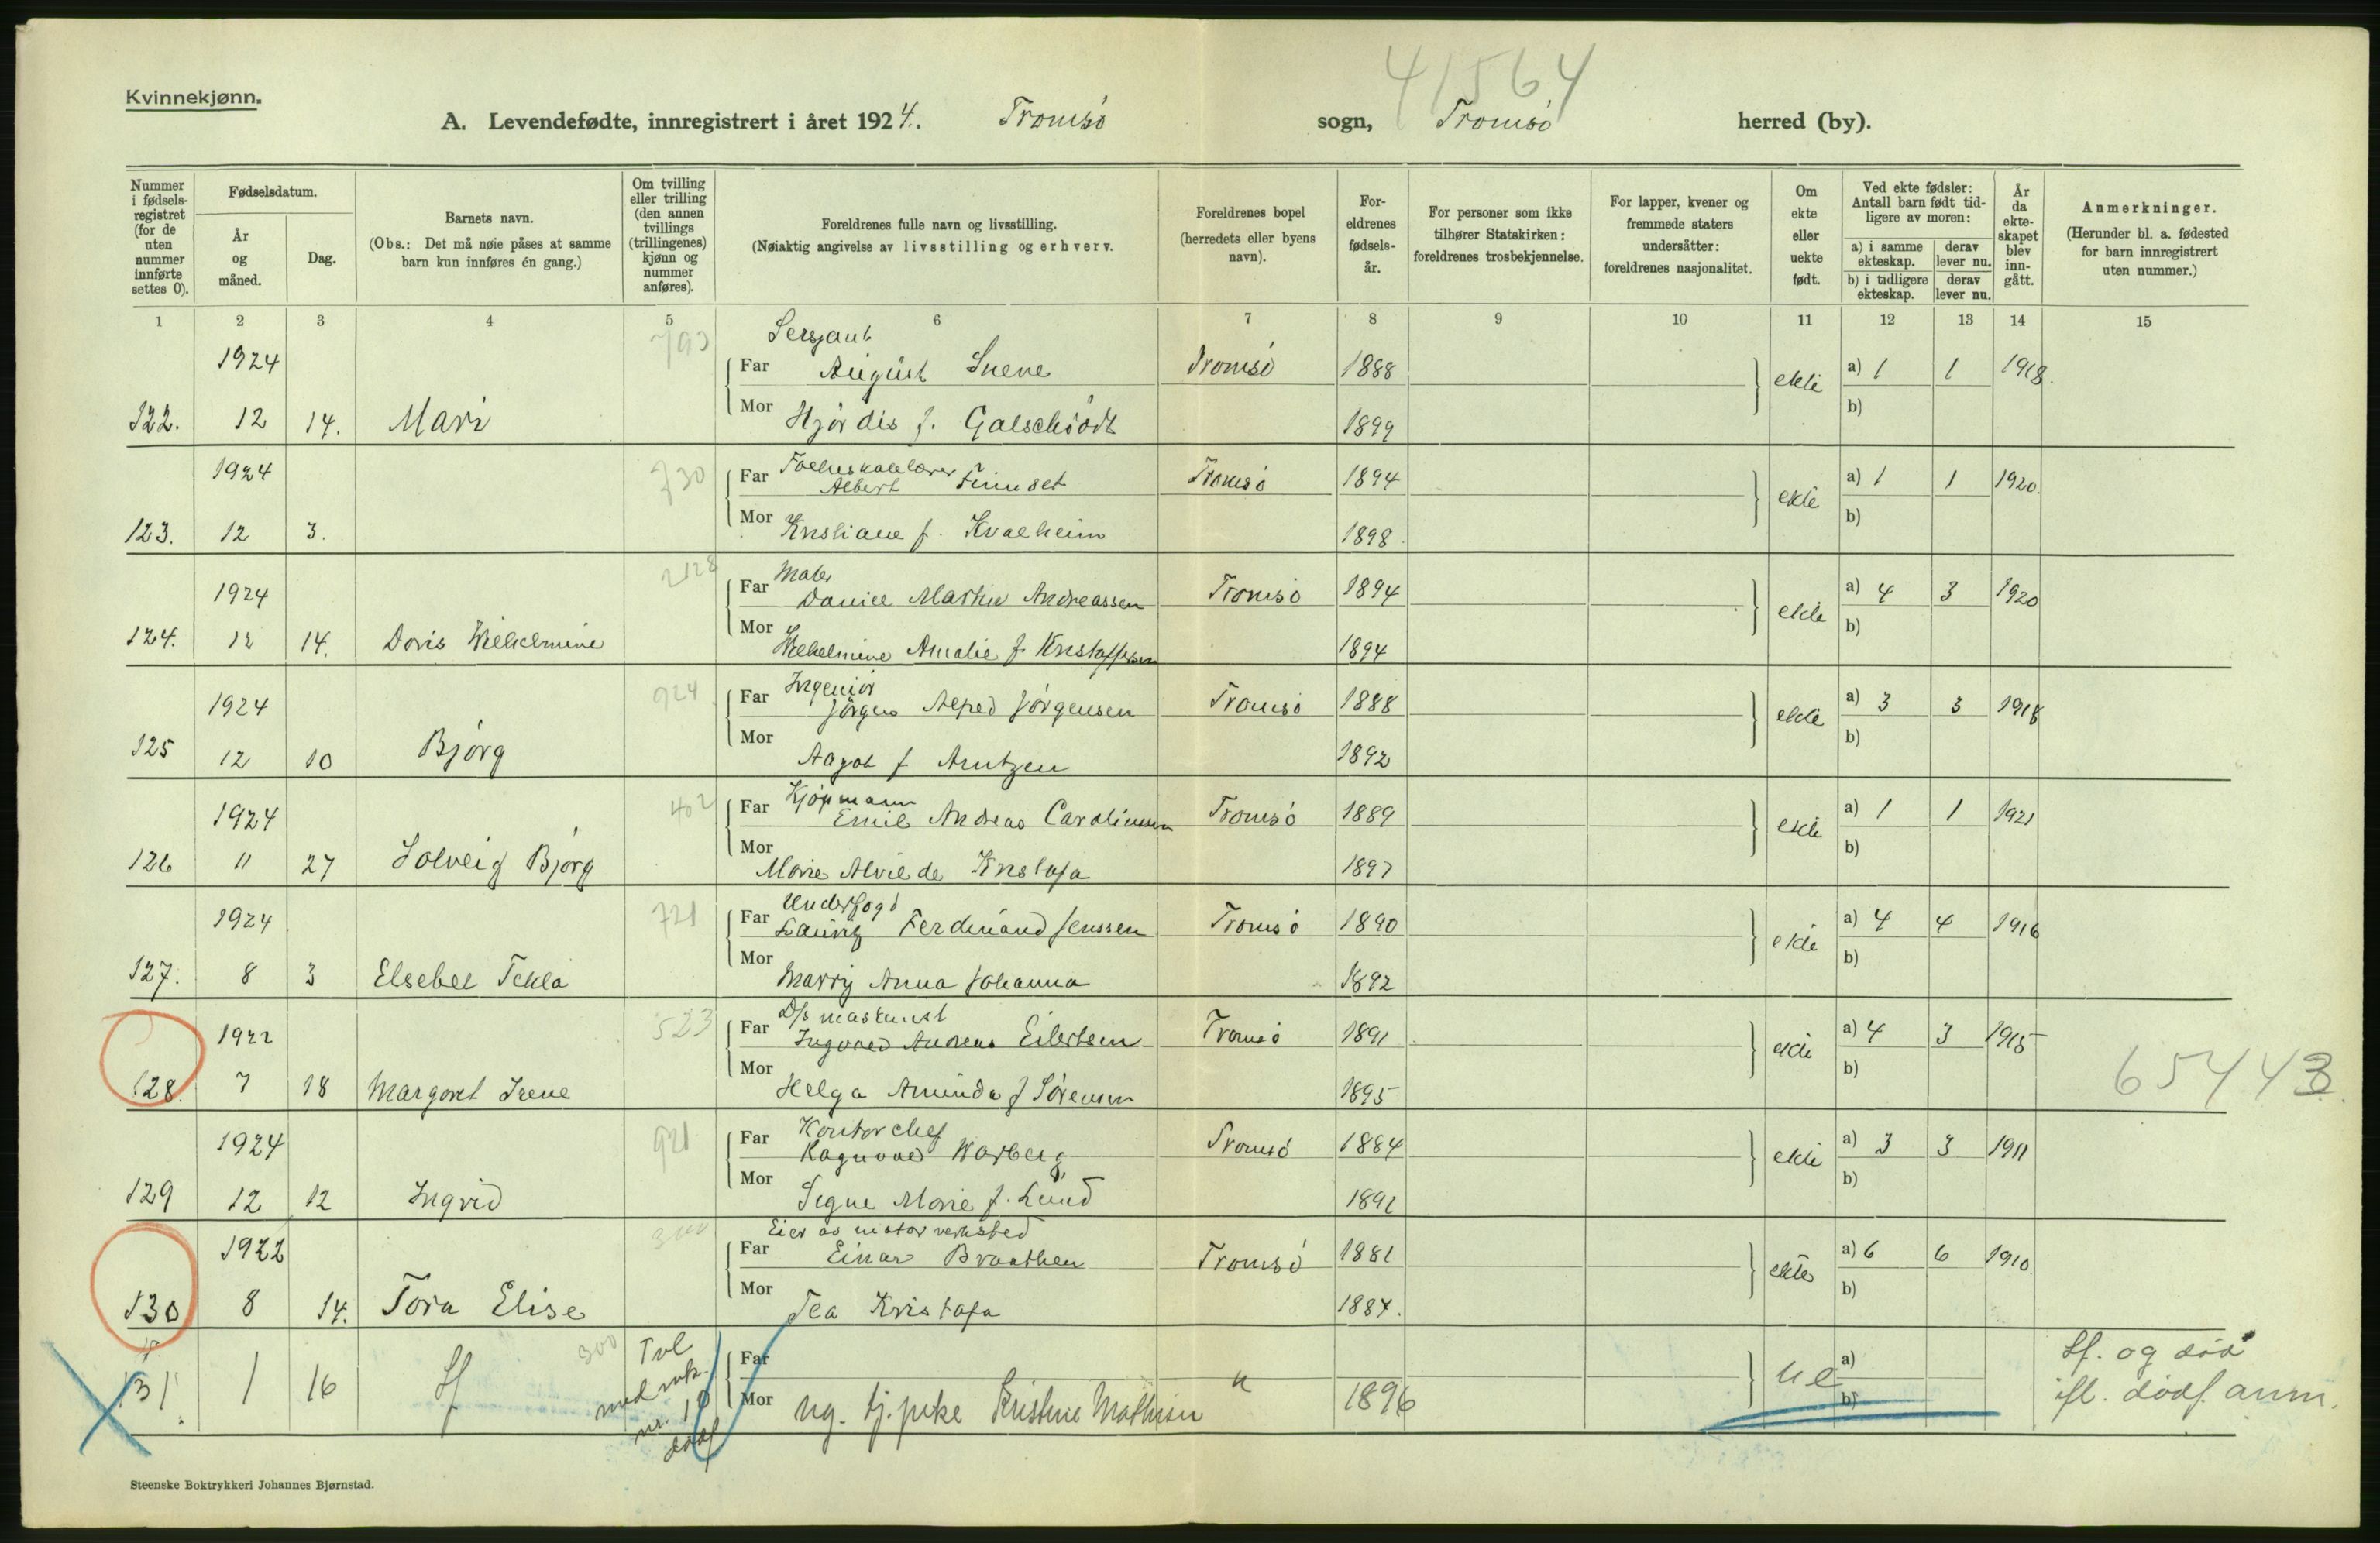 Kvinnekjønn.
41564
A. Levendefødte, innregistrert i året 1924. Tromsö sogn, Tromsö herred (by).
Nummer i fødsels-registret (for de uten nummer innførte settes 0).
Fødselsdatum.
År og måned.
Dag.
Barnets navn.
(Obs.: Det må nøie påses at samme barn kun innføres én gang.)
Om tvilling eller trilling (den annen tvillings (trillingenes) kjønn og nummer anføres).
Foreldrenes fulle navn og livsstilling.
(Nøiaktig angivelse av livsstilling og erhverv.
Foreldrenes bopel (herredets eller byens navn).
For-eldrenes fødsels-år.
For personer som ikke tilhører Statskirken: foreldrenes trosbekjennelse.
For lapper, kvener og fremmede staters undersåtter: foreldrenes nasjonalitet.
Om ekte eller uekte født.
Ved ekte fødsler: Antall barn født tid-ligere av moren:
a) i samme ekteskap.
derav lever nu.
b) i tidligere ekteskap.
derav lever nu.
År da ekte-skapet blev inn-gått.
Anmerkninger.
(Herunder bl. a. fødested for barn innregistrert uten nummer.)
1 2 3 4 5 6 7 8 9 10 11 12 13 14 15
793 Sersjant
1924 Far August Sneve Tromsö 1888 ekte a) 1 1 1918.
122. 12 14. Mari Mor Hjördis f. Galschiödt 1899 b)
1924 730 Far Albert Finnset Tromsö 1894 ekte a) 1 1 1920.
123. 12 3. Mor Kristiane f. Kvalheim 1898. b)
2128 Maler
1924 Far Daniel Martin Andreassen Tromsö 1894 ekte a) 4 3 1920
124. 12 14. Doris Wilhelmine Mor Wilhelmine Amalie f. Kristoffersen 1894 b)
924 Ingeniör
1924 Far Jörgen Alfred Jörgensen Tromsö 1888 ekte a) 3 3 1918
125 12 10 Björg Mor Aagot f Arntzen 1892 b)
402 Kjöpmann
1924 Far Emil Andreas Carolinssen Tromsö 1889 ekte a) 1 1 1921
126 11 27 Solveig Björg Mor Marie Alvilde Kristofa 1897 b)
721 Underfogd
1924 Far Lauritz Ferdinand Jenssen Tromsö 1890 ekte a) 4 4 1916
127. 8 3 Elsebet Tekla Mor Marry Anna Johanna 1892 b)
523 D/s maskinist
1922 Far Ingvald Andreas Eilertsen Tromsö 1891 ekte a) 4 3 1915
128. 7 18 Margoret Irene Mor Helga Aminda f Sörensen 1895 b) 65443
921 Kontorchef
1924 Far Ragnvald Warberg Tromsö 1884 ekte a) 3 3 1911
129 12 12 Ingrid Mor Signe Marie f. Lund 1891 b)
300 Eier av motorverksted
1922 Far Einar Braathen Tromsö 1881 ekte a) 6 6 1910
130 8 14. Tora Elise Mor Tea Kristofa 1887. b)
300 Tvl. Far a) Sf. og død
131. 1 16 Sf med mk. nr. 10 dødf Mor ug. tj.pike Kristine Mathisen " 1896 ue b) ifl. dødf. anm.
Steenske Boktrykkeri Johannes Bjørnstad.